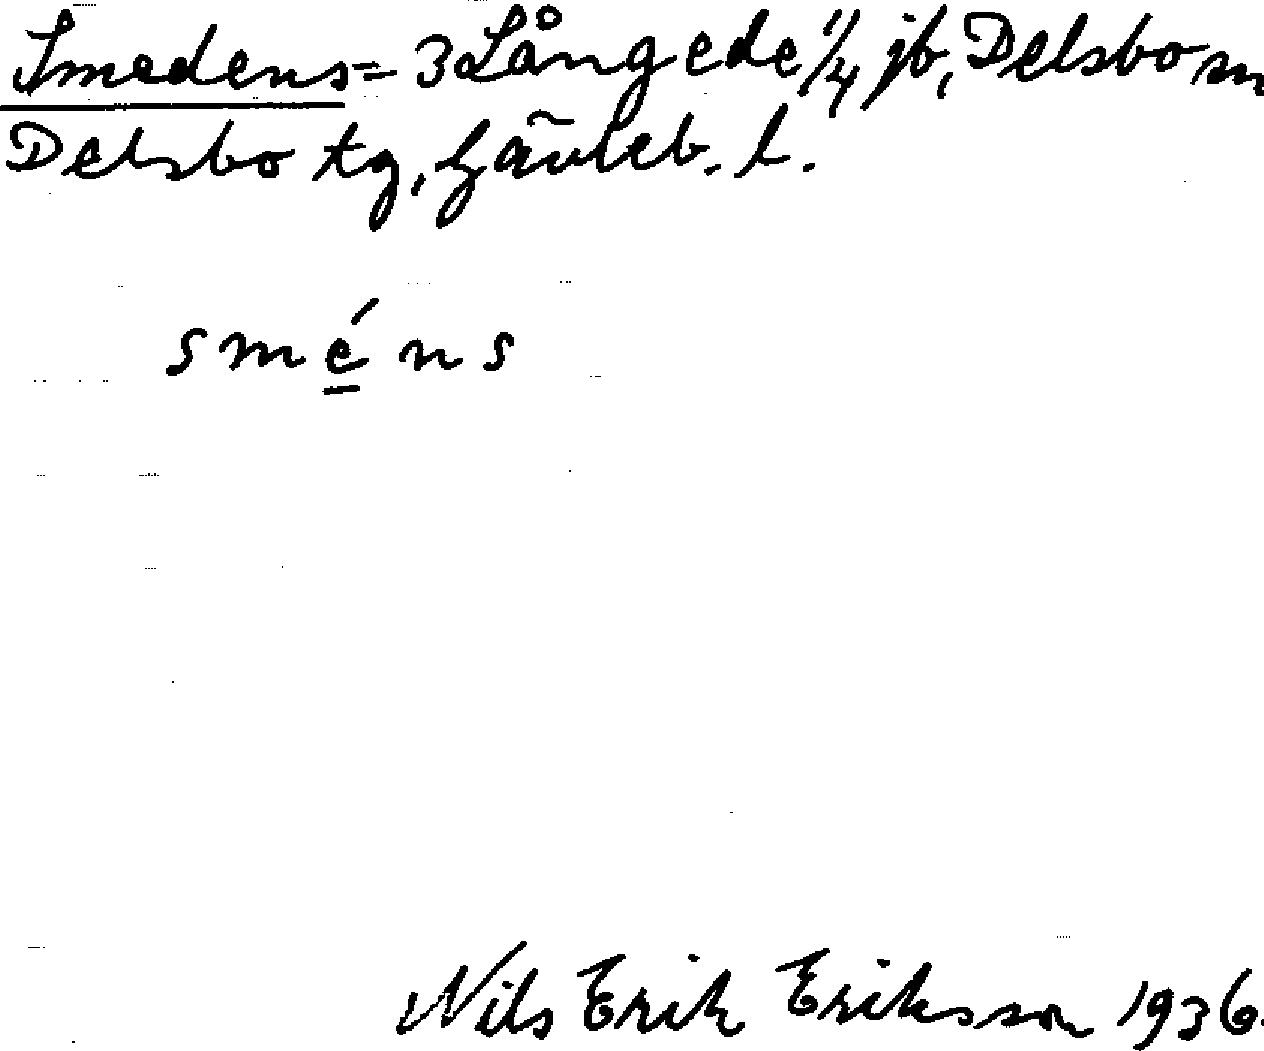 Smedens = 3 Långede 1/4 jb, Delsbo sn
Delsbo tg, Gävleb. l.
sméns
Nils Erik Eriksson 1936.